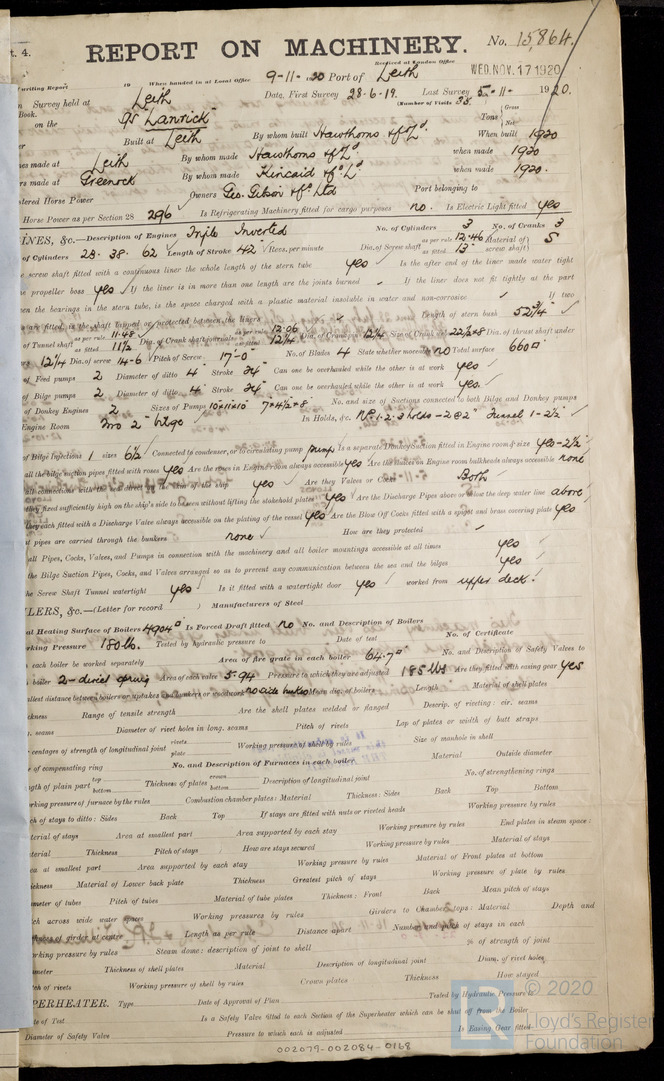 t. 4.
REPORT ON MACHINERY. No. 15,864.
Received at London Office WED. NOV. 17 1920
writing Report 19 When handed in at Local Office 9-11-20 Port of Leith
n Survey held at Leith Date, First Survey 28.6.19. Last Survey 5-11- 1920.
Book. (Number of Visits 38.
on the "Lanrick" Tons { Gross Net
Built at Leith By whom built Hawthorns & Co Ld. When built 1920
nes made at Leith By whom made Hawthorns & Co Ld. when made 1920
rs made at Greenock By whom made Kincaid & Co Ld. when made 1920.
stered Horse Power Owners Geo. Gibson & Co Ltd Port belonging to
Horse Power as per Section 28 296 Is Refrigerating Machinery fitted for cargo purposes no. Is Electric Light fitted yes
INES, &c.—Description of Engines Triple Inverted No. of Cylinders 3 No. of Cranks 3
of Cylinders 23. 38. 62 Length of Stroke 42 Revs. per minute Dia. of Screw shaft as per rule 12.46 as fitted 13" Material of screw shaft) S
e screw shaft fitted with a continuous liner the whole length of the stern tube yes Is the after end of the liner made water tight
he propeller boss yes If the liner is in more than one length are the joints burned If the liner does not fit tightly at the part
een the bearings in the stern tube, is the space charged with a plastic material insoluble in water and non-corrosive If two
rs are fitted, is the shaft lapped or protected between the liners Length of stern bush 52 3/4
of Tunnel shaft as per rule 11.48 as fitted 11 1/2 Dia. of Crank shaft journals as per rule 12.06 as fitted 12 1/4 Dia. of Crank pin 12 1/4 Size of Crank webs 22 1/2 x 8 Dia. of thrust shaft under
12 1/4 Dia. of screw 14-6 Pitch of Screw 17'-0" No. of Blades 4 State whether moveable no Total surface 66
of Feed pumps 2 Diameter of ditto 4 Stroke 24 Can one be overhauled while the other is at work yes
of Bilge pumps 2 Diameter of ditto 4 Stroke 24 Can one be overhauled while the other is at work yes.
of Donkey Engines 2 Sizes of Pumps 10x11x10 7x4 1/2x8 No. and size of Suctions connected to both Bilge and Donkey pumps
Engine Room Two 2" bilge In Holds, &c. No. 1. 2. 3 holds - 2 @ 2" Tunnel 1 - 2 1/2
of Bilge Injections 1 sizes 6 1/2 Connected to condenser, or to circulating pump pump Is a separate Donkey Suction fitted in Engine room & size yes - 2 1/2
all the bilge suction pipes fitted with roses yes Are the roses in Engine room always accessible yes Are the sluices on Engine room bulkheads always accessible none
all connections with the sea direct on the skin of the ship yes Are they Valves or Cocks Both
they fixed sufficiently high on the ship's side to be seen without lifting the stokehold plates yes Are the Discharge Pipes above or below the deep water line above
they each fitted with a Discharge Valve always accessible on the plating of the vessel yes Are the Blow Off Cocks fitted with a spigot and brass covering plate yes
t pipes are carried through the bunkers none How are they protected
all Pipes, Cocks, Valves, and Pumps in connection with the machinery and all boiler mountings accessible at all times yes
the Bilge Suction Pipes, Cocks, and Valves arranged so as to prevent any communication between the sea and the bilges yes
he Screw Shaft Tunnel watertight yes Is it fitted with a watertight door yes worked from upper deck.
LERS, &c.—(Letter for record ) Manufacturers of Steel
al Heating Surface of Boilers 4904 Is Forced Draft fitted no No. and Description of Boilers
rking Pressure 180 lbs. Tested by hydraulic pressure to Date of test No. of Certificate
each boiler be worked separately Area of fire grate in each boiler 64.7 No. and Description of Safety Valves to
boiler 2 - direct spring Area of each valve 5.94 Pressure to which they are adjusted 185 lbs Are they fitted with easing gear yes
allest distance between boilers or uptakes and bunkers or woodwork no side bunkers Mean dia. of boilers Length Material of shell plates
ckness Range of tensile strength Are the shell plates welded or flanged Descrip. of riveting: cir. seams
. seams Diameter of rivet holes in long. seams Pitch of rivets Lap of plates or width of butt straps
centages of strength of longitudinal joint rivets plate Working pressure of shell by rules Size of manhole in shell
e of compensating ring No. and Description of Furnaces in each boiler Material Outside diameter
ngth of plain part top bottom Thickness of plates crown bottom Description of longitudinal joint No. of strengthening rings
orking pressure of furnace by the rules Combustion chamber plates: Material Thickness: Sides Back Top Bottom
ch of stays to ditto: Sides Back Top If stays are fitted with nuts or riveted heads Working pressure by rules
terial of stays Area at smallest part Area supported by each stay Working pressure by rules End plates in steam space:
terial Thickness Pitch of stays How are stays secured Working pressure by rules Material of stays
ea at smallest part Area supported by each stay Working pressure by rules Material of Front plates at bottom
ickness Material of Lower back plate Thickness Greatest pitch of stays Working pressure of plate by rules
ameter of tubes Pitch of tubes Material of tube plates Thickness: Front Back Mean pitch of stays
ch across wide water spaces Working pressures by rules Girders to Chamber tops: Material Depth and
ckness of girder at centre Length as per rule Distance apart Number and pitch of stays in each
orking pressure by rules Steam dome: description of joint to shell % of strength of joint
ameter Thickness of shell plates Material Description of longitudinal joint Diam. of rivet holes
tch of rivets Working pressure of shell by rules Crown plates Thickness How stayed
PERHEATER. Type Date of Approval of Plan Tested by Hydraulic Pressure to
te of Test Is a Safety Valve fitted to each Section of the Superheater which can be shut off from the Boiler
Diameter of Safety Valve Pressure to which each is adjusted Is Easing Gear fitted
002079-002084-0168
LR © 2020
Lloyd's Register
Foundation